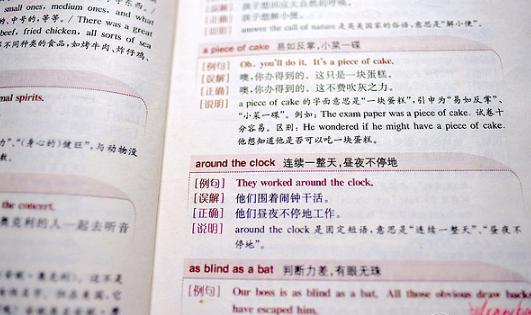 small ones, medium ones, and what
，中号的，等等。/ There was a great
beef, fried chicken, all sorts of sea
不同种类的食品，如烤牛肉、炸仔鸡、
mal spirits.
力”，“（身心的）健旺”，与动物没
the concert.
奥克利的人一起去听音
[正确] 孩子想小便。
[说明] answer the call of nature 是英美国家的俗语，意思是“解小便”。
a piece of cake 易如反掌，小菜一碟
[例句] Oh, you'll do it. It's a piece of cake.
[误解] 噢，你办得到的。这只是一块蛋糕。
[正确] 噢，你办得到的。这不费吹灰之力。
[说明] a piece of cake 的字面意思是“一块蛋糕”，引申为“易如反掌”、
“小菜一碟”。例如：The exam paper was a piece of cake. 试卷十
分容易。区别：He wondered if he might have a piece of cake.
他想知道他是否可以吃一块蛋糕。
around the clock 连续一整天，昼夜不停地
[例句] They worked around the clock.
[误解] 他们围着闹钟干活。
[正确] 他们昼夜不停地工作。
[说明] around the clock 是固定短语，意思是“连续一整天”、“昼夜不
停地”。
as blind as a bat 判断力差，有眼无珠
[例句] Our boss is as blind as a bat. All those obvious draw back
have escaped him.